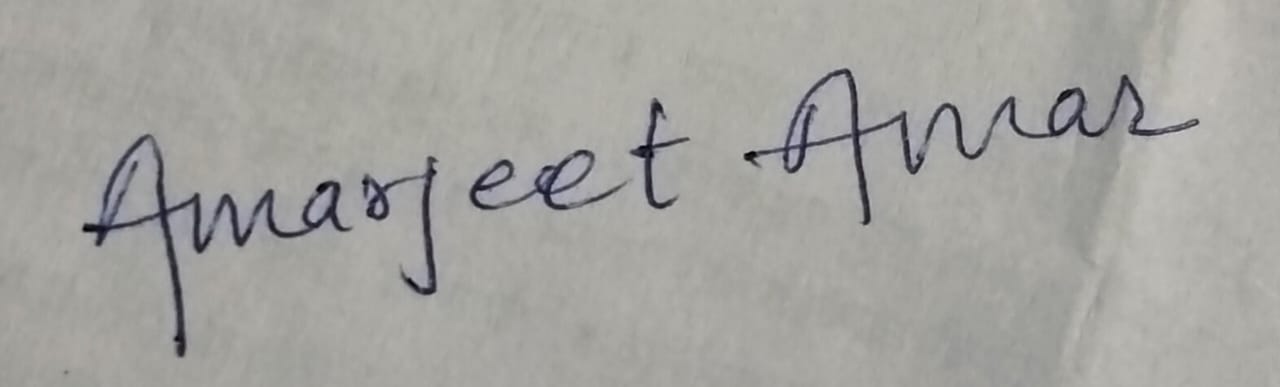 Amarjeet Amar